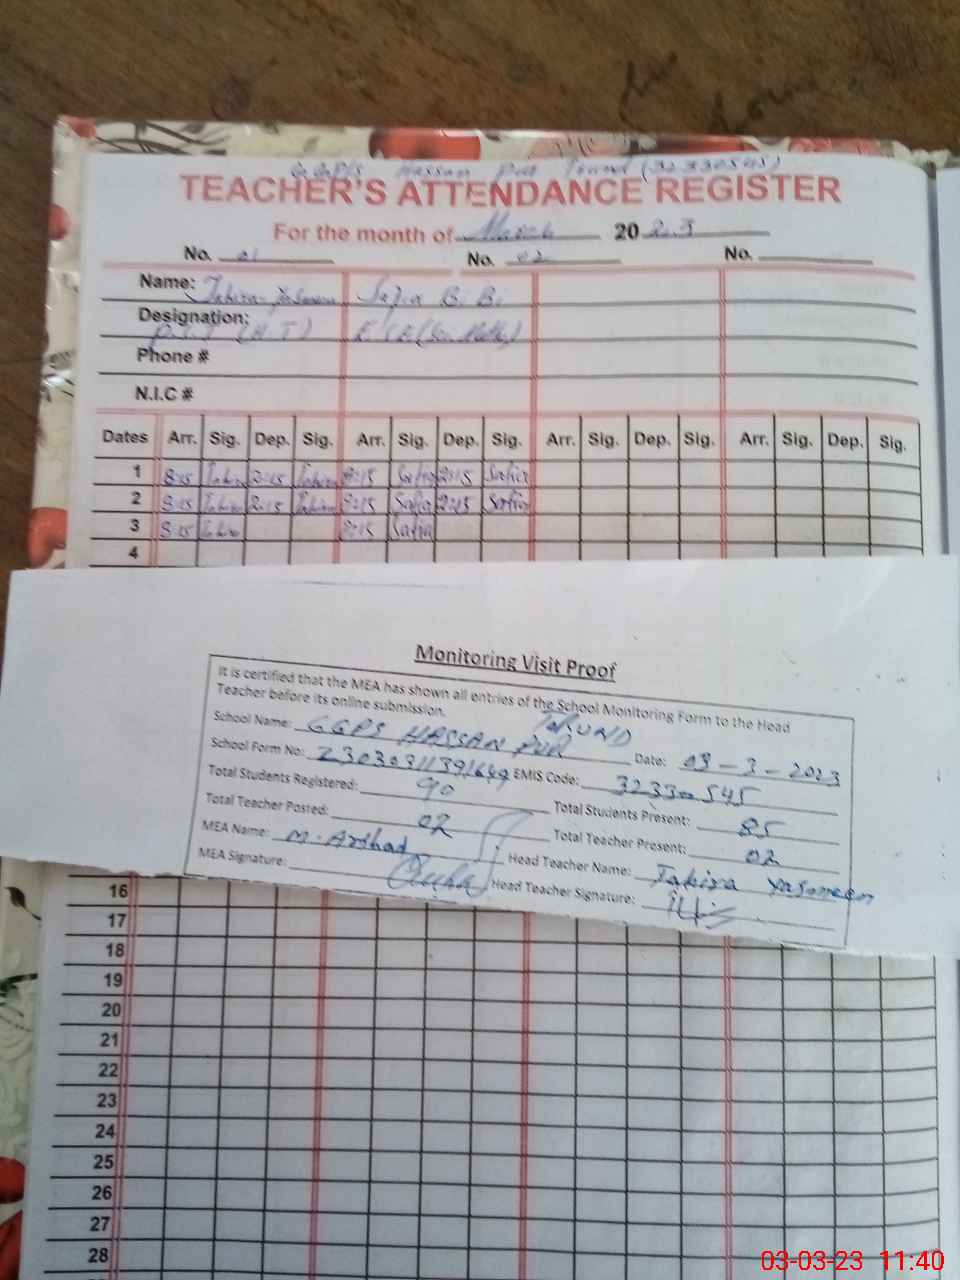 GGPS Hassan Pur Tarund (32330545)
TEACHER'S ATTENDANCE REGISTER
For the month of March 2023
No. 01 No. 02 No.
Name: Tahira Yasmeen Safia Bi Bi
Designation: P.S.T (H.T) E S E
Phone #
N.I.C #
Dates Arr. Sig. Dep. Sig. Arr. Sig. Dep. Sig. Arr. Sig. Dep. Sig. Arr. Sig. Dep. Sig.
1 8:15 Tahira 2:15 Tahira 8:15 Safia 2:15 Safia
2 8:15 Tahira 2:15 Tahira 8:15 Safia 2:15 Safia
3 8:15 Tahira 8:15 Safia
4
Monitoring Visit Proof
It is certified that the MEA has shown all entries of the School Monitoring Form to the Head
Teacher before its online submission.
School Name: GGPS HASSAN PUR TARUND Date: 03-3-2023
School Form No: 23030311391649 EMIS Code: 32330545
Total Students Registered: 90 Total Students Present: 85
Total Teacher Posted: 02 Total Teacher Present: 02
MEA Name: M. Arshad Head Teacher Name: Tahira Yasmeen
MEA Signature: Head Teacher Signature:
16
17
18
19
20
21
22
23
24
25
26
27
28
03-03-23 11:40